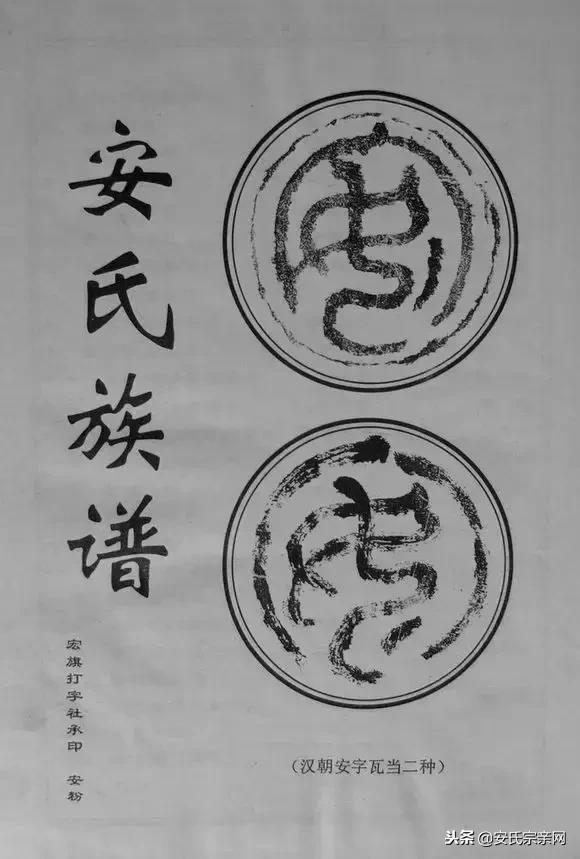 安氏族谱
宏旗打字社承印 安粉
安
安
（汉朝安字瓦当二种）
头条@安氏宗亲网